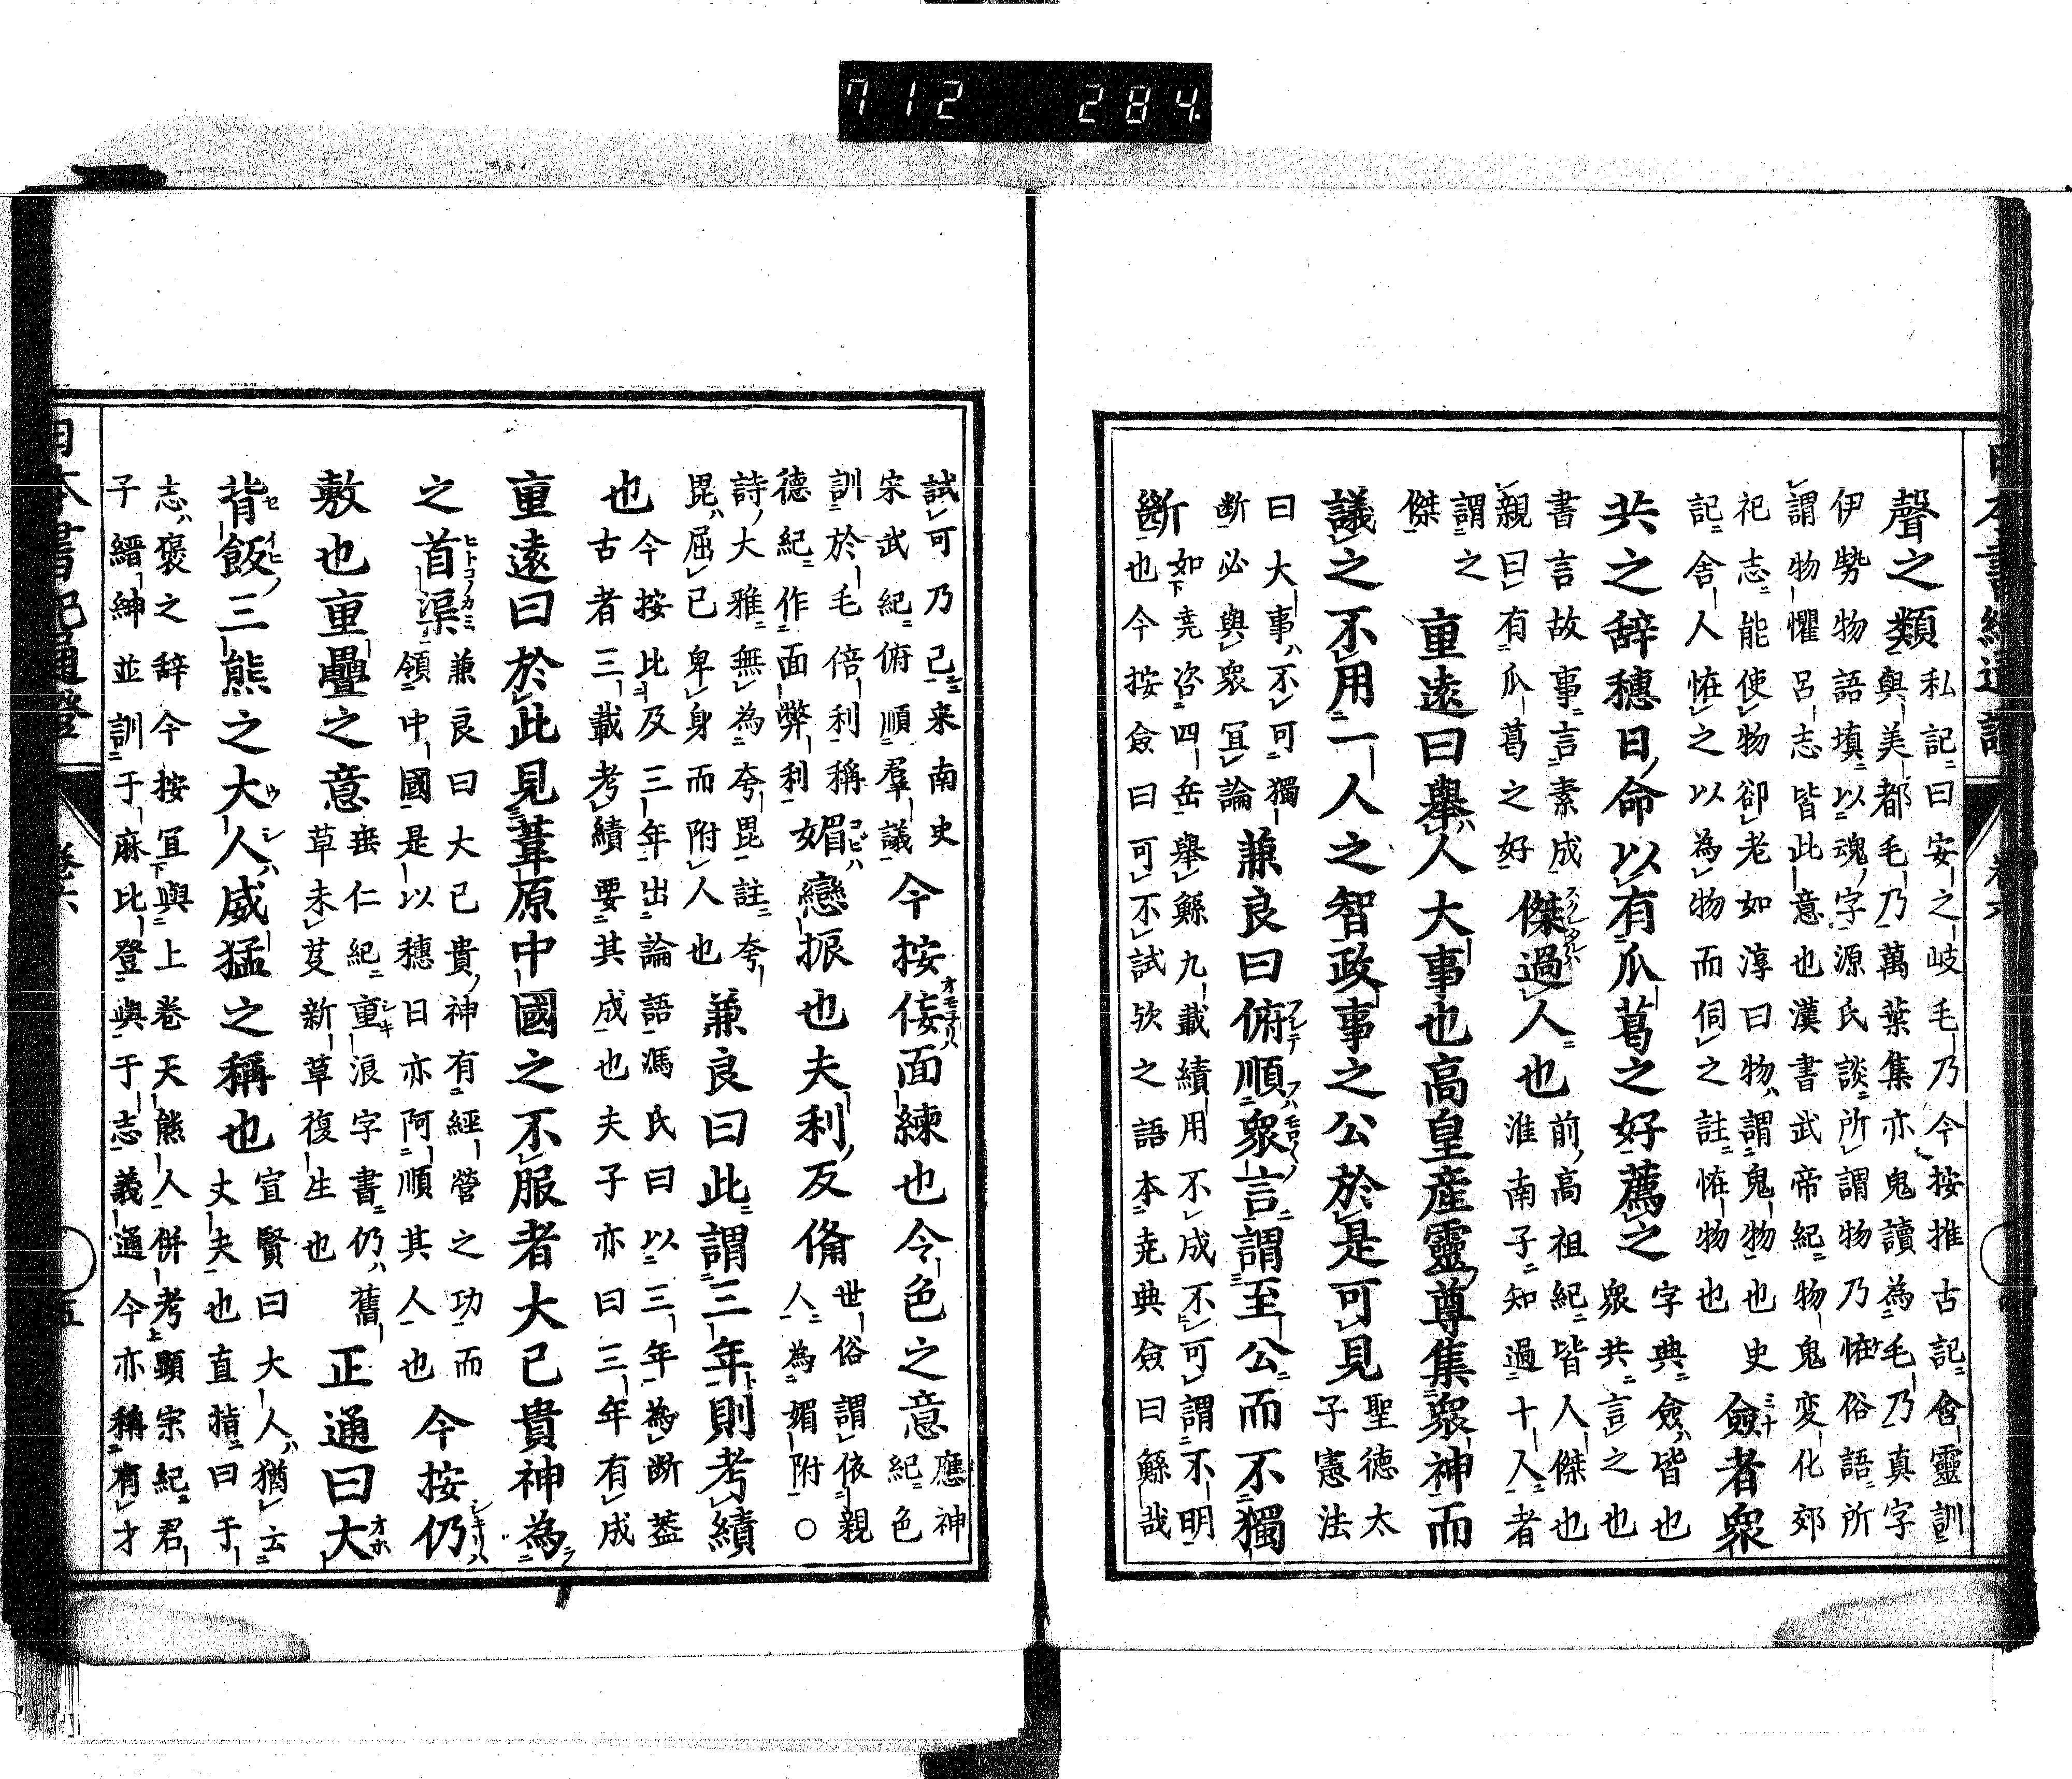 聲之類
私記曰安之岐毛乃今按推古記會靈訓
與美都毛乃萬葉集亦鬼讀為毛乃真字
伊勢物語填以魂字源氏談所謂物乃恠俗語所
謂物懼呂志皆此意也漢書武帝紀物鬼変化郊
祀志能使物卻老如淳曰物謂鬼物也史
記舎人恠之以為物而伺之註恠物也
僉者眾
共之辞穗日命以有瓜葛之好薦之
字典僉皆也
眾共言之也
書言故事言素成
親曰有瓜葛之好
傑過人也
前高祖紀皆人傑也
淮南子知過十人者
謂之
傑
重遠曰舉人大事也高皇産靈尊集眾神而
議之不用一人之智政事之公於是可見
聖德太
子憲法
曰大事不可獨
断必與衆冝論
兼良曰俯順衆言謂至公而不獨
斷
如堯咨四岳舉鯀九載績用不成不可謂不明
也今按僉曰可不試欤之語本堯典僉曰鯀哉
試可乃已来南史
宋武紀俯順羣議
今按佞面練也今色之意
應神
紀色
訓於毛倍利稱
德紀作面弊利
媚戀振也夫利反俻
世俗謂依親
人為媚附○
詩大雅無為夸毘註夸
毘屈已卑身而附人也
兼良曰此謂三年則考績
也
今按比及三年出論語馮氏曰以三年為断葢
古者三載考績要其成也夫子亦曰三年有成
重遠曰於此見葦原中國之不服者大已貴神為
之首渠
兼良曰大已貴神有經營之功而
領中國是以穗日亦阿順其人也
今按仍
敷也重疊之意
垂仁紀重浪字書仍舊
草未芟新草復生也
正通曰大
背飯三熊之大人威猛之稱也
宣賢曰大人猶云
丈夫也直指曰于
志褒之辞今按冝與上卷天熊人併考顯宗紀君
子縉紳並訓于麻比登與于志義通今亦稱有才
日本書紀通證 卷六 五
712 284